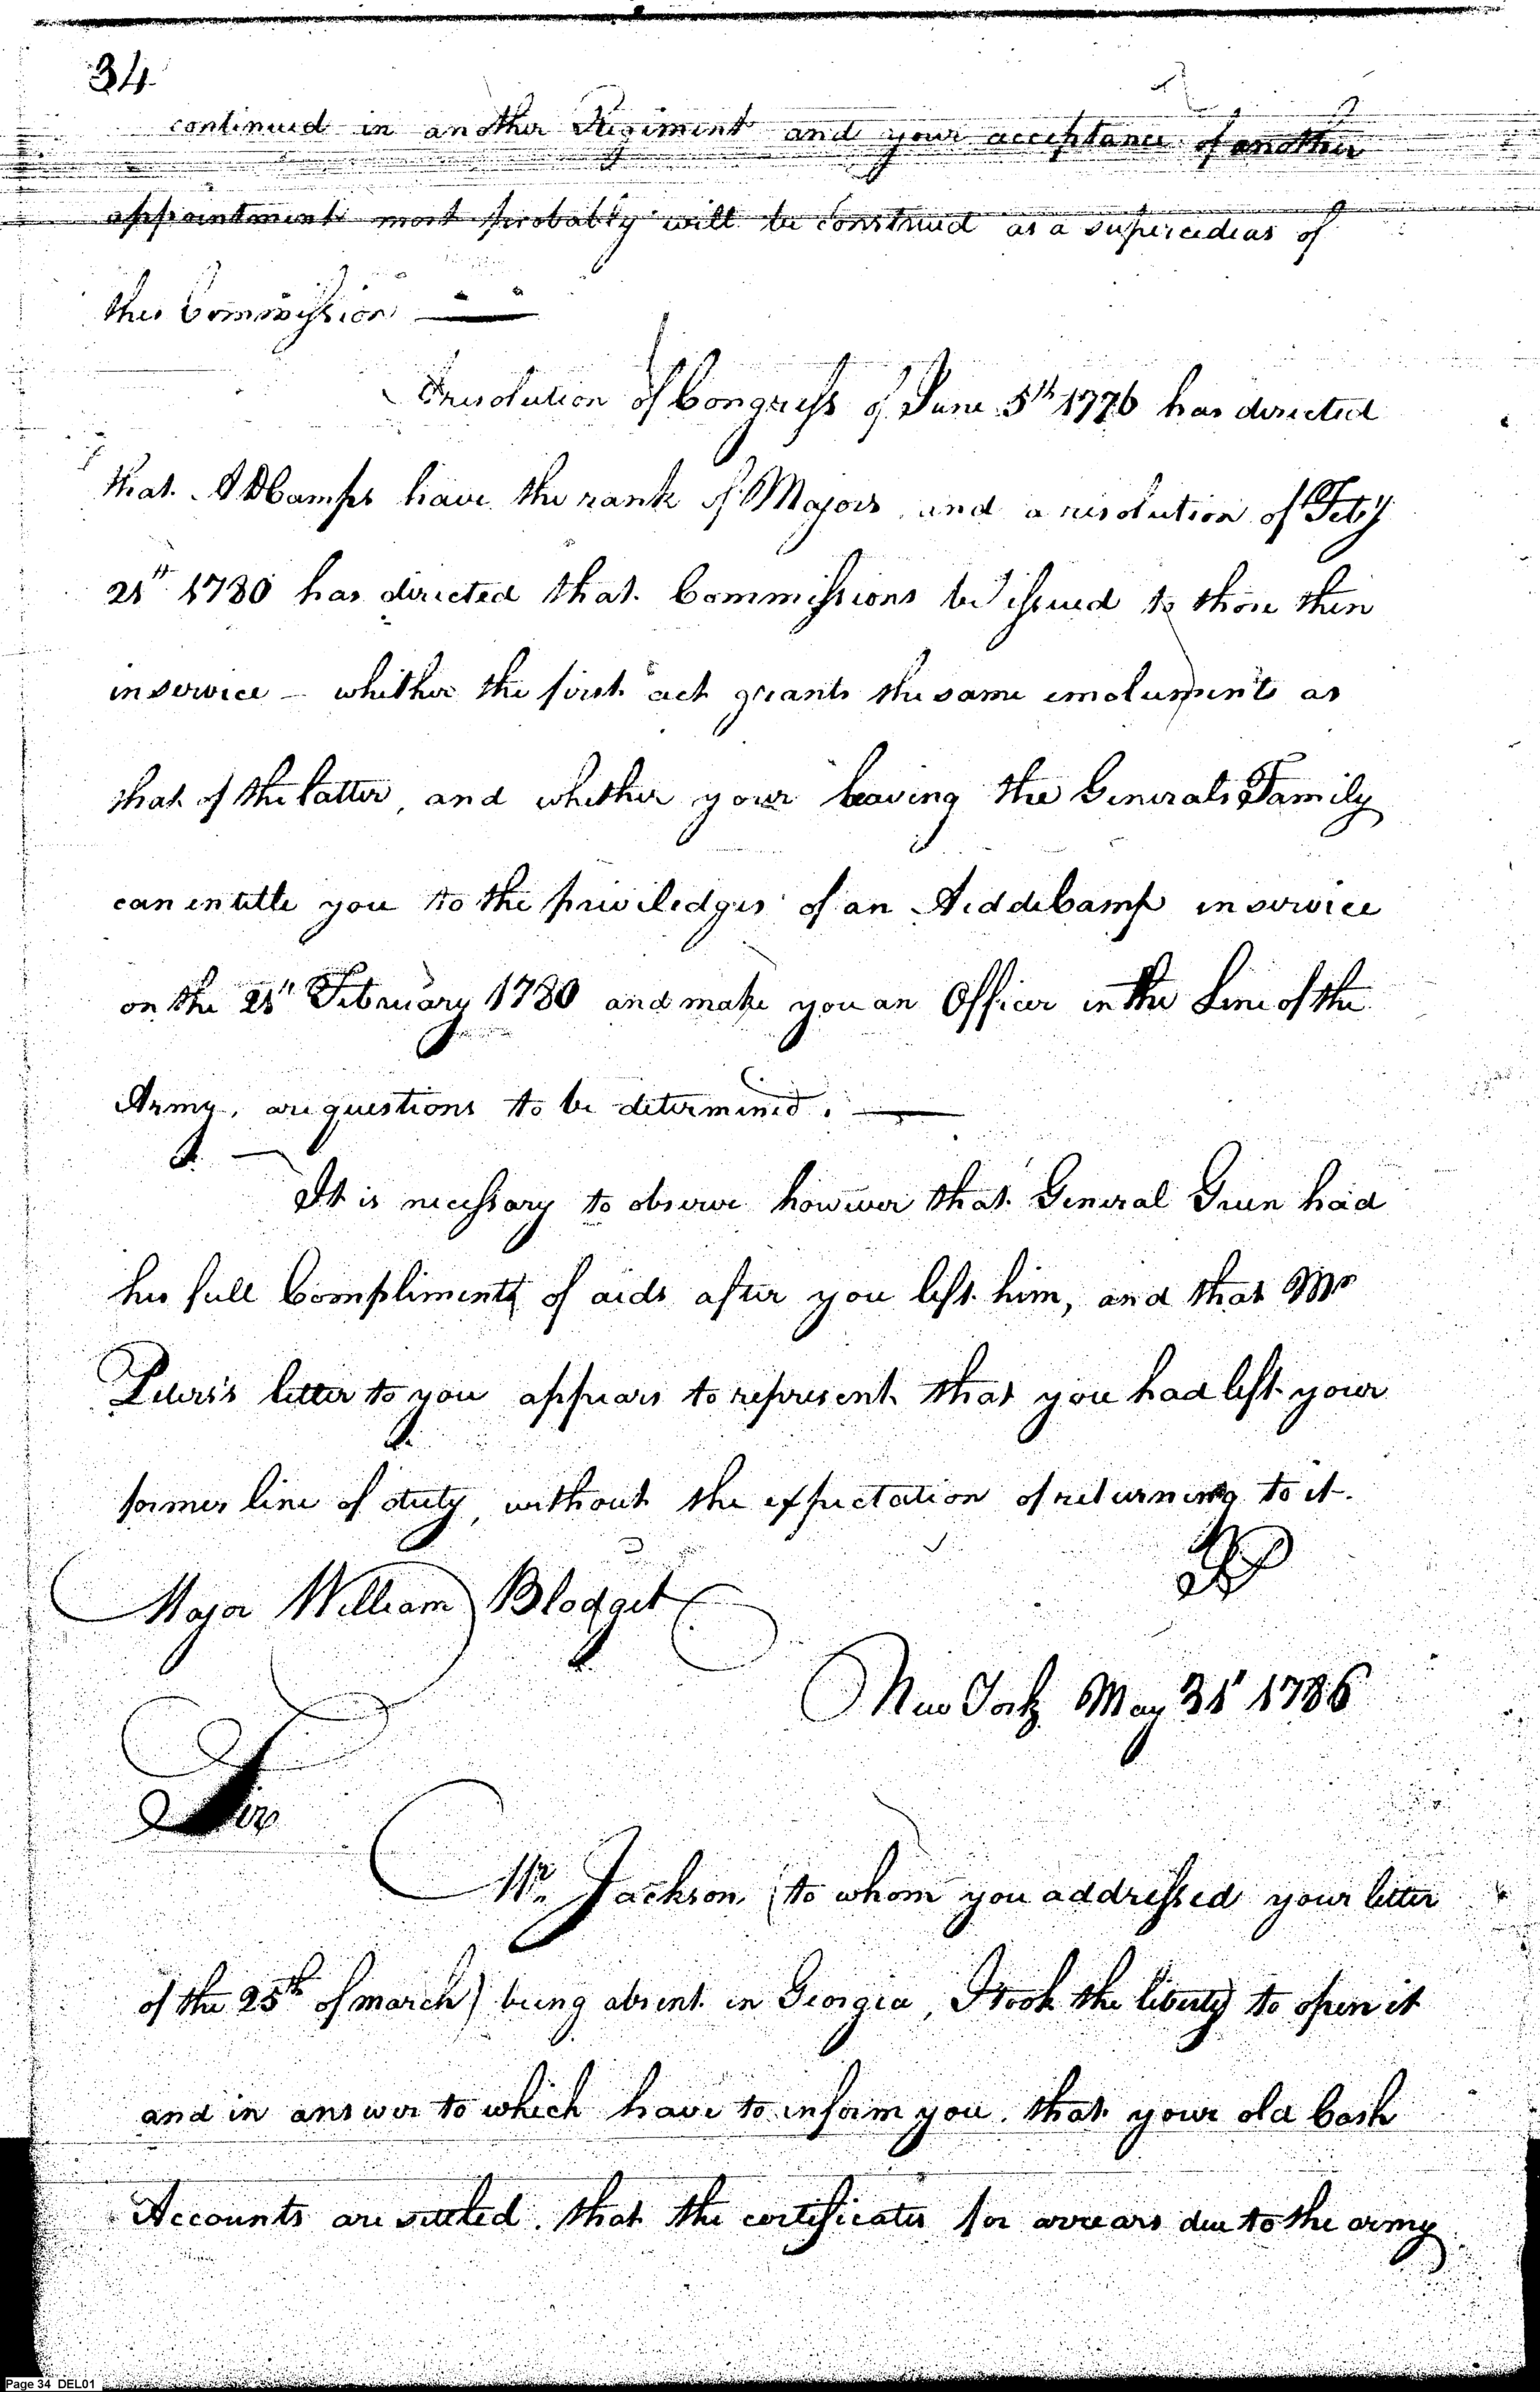 34
continued in another Regiment and your acceptance of another
appointment most probably will be construed as a supercedias of
this Commission
A resolution of Congress of June 5th 1776 has directed
that A D Camps have the rank of Majors, and a resolution of Feby
21st 1780 has directed that Commissions be issued to those then
in service – whether the first act grants the same emoluments as
that of the latter, and whether your leaving the Generals Family
can entitle you to the priviledges of an Aid de Camp in service
on the 21st February 1780 and make you an Officer in the Line of the
Army, are questions to be determined. —
It is necessary to observe however that General Green had
his full Compliment of aids after you left him, and that Mr
Peters's letter to you appears to represent that you had left your
former line of duty, without the expectation of returning to it.
Major William Blodget
New York May 31st 1786
Sir
Mr. Jackson (to whom you addressed your letter
of the 25th of march) being absent in Georgia, I took the liberty to open it
and in answer to which have to inform you that your old Cash
Accounts are settled. that the certificates for arrears due to the army
Page 34 DEL01